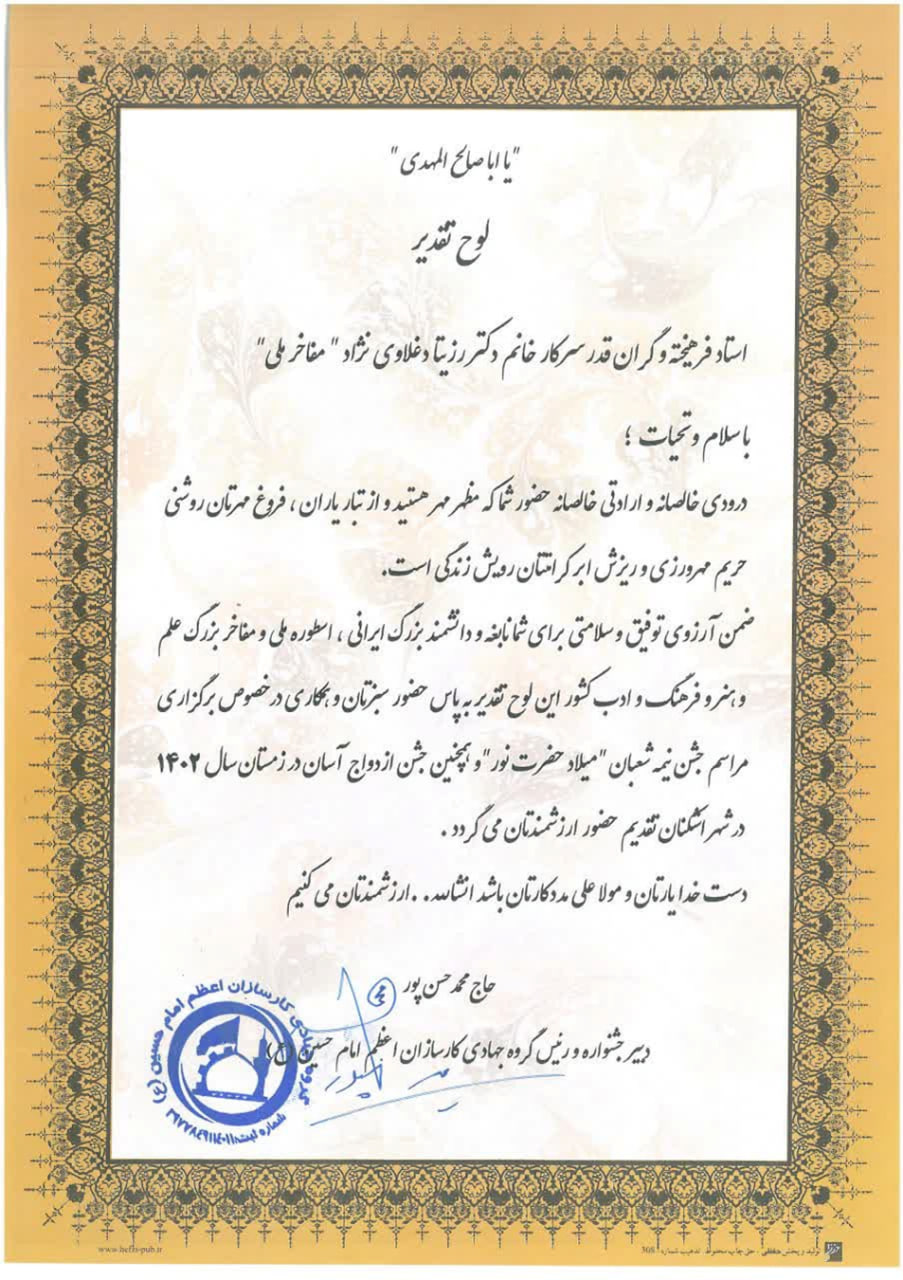 "یا ابا صالح المهدی"
لوح تقدیر
استاد فرهیخته و گران قدر سرکار خانم دکتر رزیتا دغلاوی نژاد " مفاخر ملی"
با سلام و تحیات ؛
درودی خالصانه و ارادتی خالصانه حضور شما که مظهر مهر هستید و از تبار یاران ، فروغ مهرتان روشنی
حریم مهرورزی و ریزش ابر کرامتتان رویش زندگی است.
ضمن آرزوی توفیق و سلامتی برای شما نابغه و دانشمند بزرگ ایرانی ، اسطوره ملی و مفاخر بزرگ علم
و هنر و فرهنگ و ادب کشور این لوح تقدیر به پاس حضور سبزتان و همکاری در خصوص برگزاری
مراسم جشن نیمه شعبان "میلاد حضرت نور" و همچنین جشن ازدواج آسان در زمستان سال ۱۴۰۲
در شهر اشکنان تقدیم حضور ارزشمندتان می گردد .
دست خدا یارتان و مولا علی مددکارتان باشد انشاالله . . . ارزشمندتان می کنیم
حاج محمد حسن پور
دبیر جشنواره و رئیس گروه جهادی کارسازان اعظم امام حسین (ع)
گروه جهادی کارسازان اعظم امام حسین (ع)
شماره ثبت:
www.heffi-pub.ir
تولید و پخش حفظی . حق چاپ محفوظ . تذهیب شماره : 305